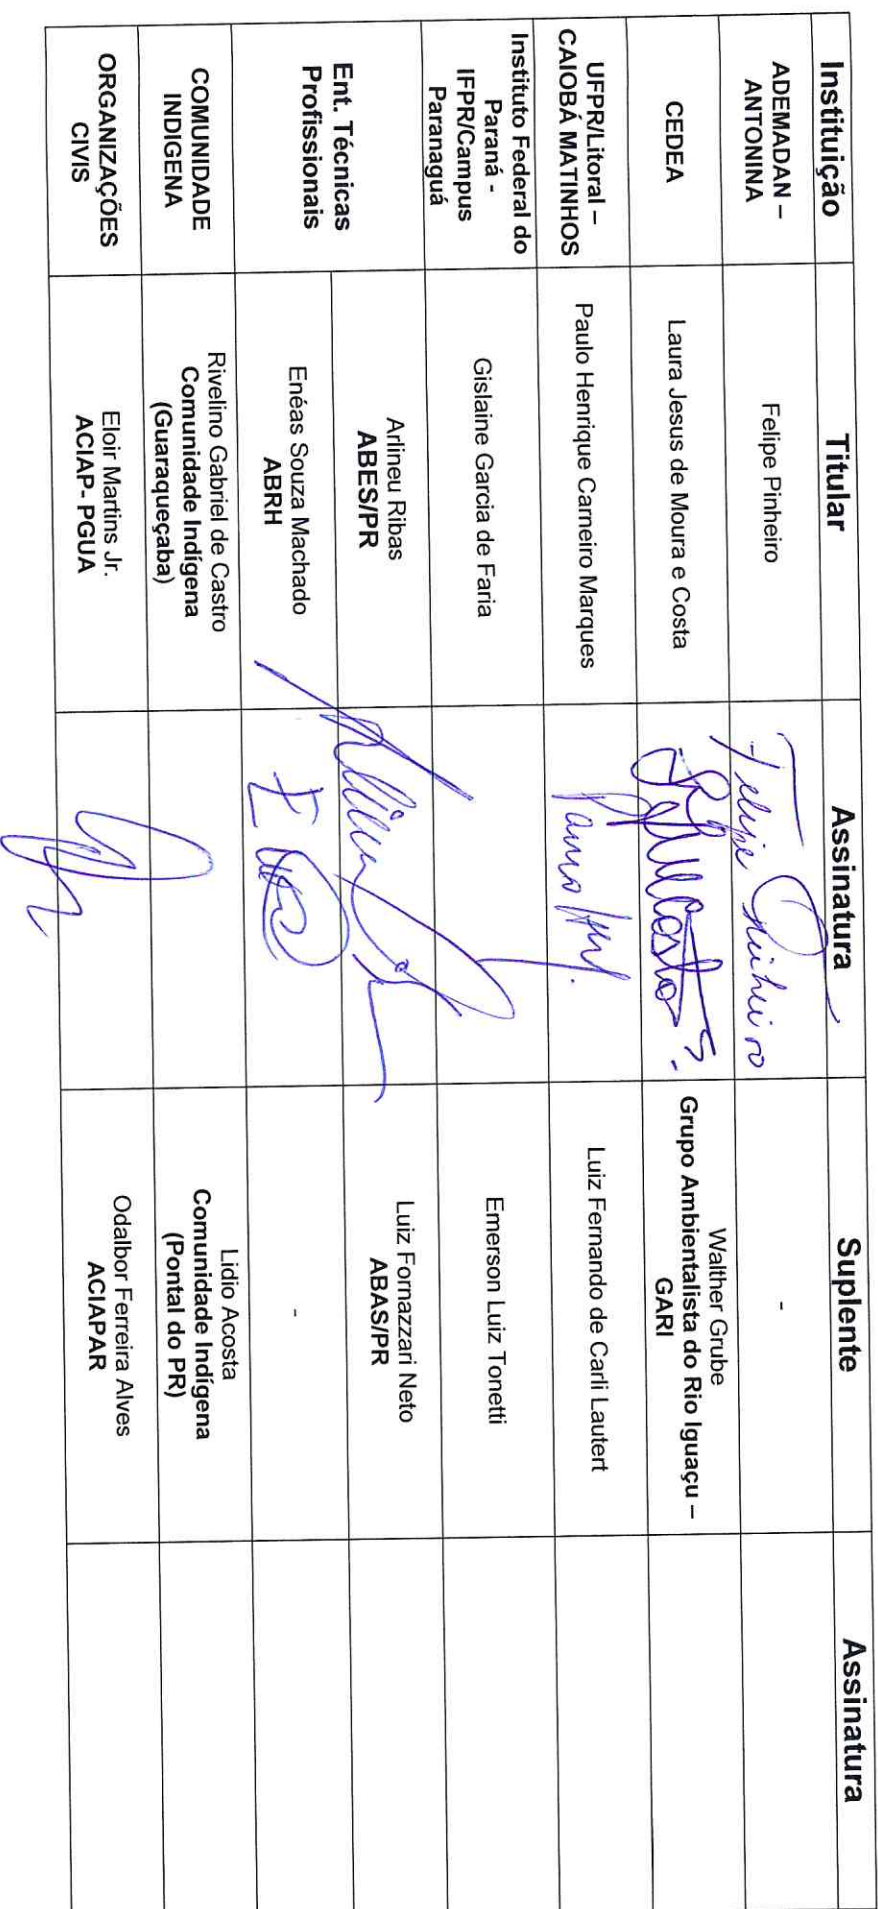 Instituição
Titular
Assinatura
Suplente
Assinatura
ADEMADAN –
ANTONINA
Felipe Pinheiro
Felipe Pinheiro
-
CEDEA
Laura Jesus de Moura e Costa
Walther Grube
Grupo Ambientalista do Rio Iguaçu –
GARI
UFPR/Litoral –
CAIOBÁ MATINHOS
Paulo Henrique Carneiro Marques
Luiz Fernando de Carli Lautert
Instituto Federal do
Paraná -
IFPR/Campus
Paranaguá
Gislaine Garcia de Faria
Emerson Luiz Tonetti
Ent. Técnicas
Profissionais
Arlineu Ribas
ABES/PR
Luiz Fornazzari Neto
ABAS/PR
Enéas Souza Machado
ABRH
-
COMUNIDADE
INDIGENA
Rivelino Gabriel de Castro
Comunidade Indígena
(Guaraqueçaba)
Lidio Acosta
Comunidade Indígena
(Pontal do PR)
ORGANIZAÇÕES
CIVIS
Eloir Martins Jr.
ACIAP- PGUA
Odalbor Ferreira Alves
ACIAPAR